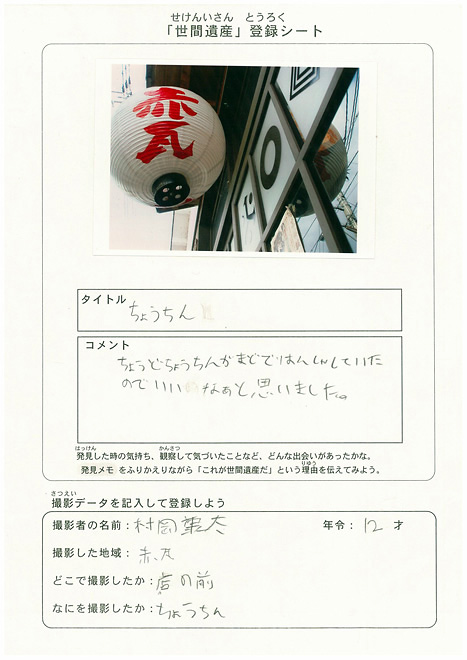 せけんいさん とうろく
「世間遺産」登録シート
赤瓦
タイトル
ちょうちん
コメント
ちょうどちょうちんがまどではんしゃしていた
のでいいなぁと思いました。
はっけん かんさつ
発見した時の気持ち、観察して気づいたことなど、どんな出会いがあったかな。
りゆう
発見メモをふりかえりながら「これが世間遺産だ」という理由を伝えてみよう。
さつえい
撮影データを記入して登録しよう
撮影者の名前：村岡 太 年令：12 才
撮影した地域：赤瓦
どこで撮影したか：店の前
なにを撮影したか：ちょうちん